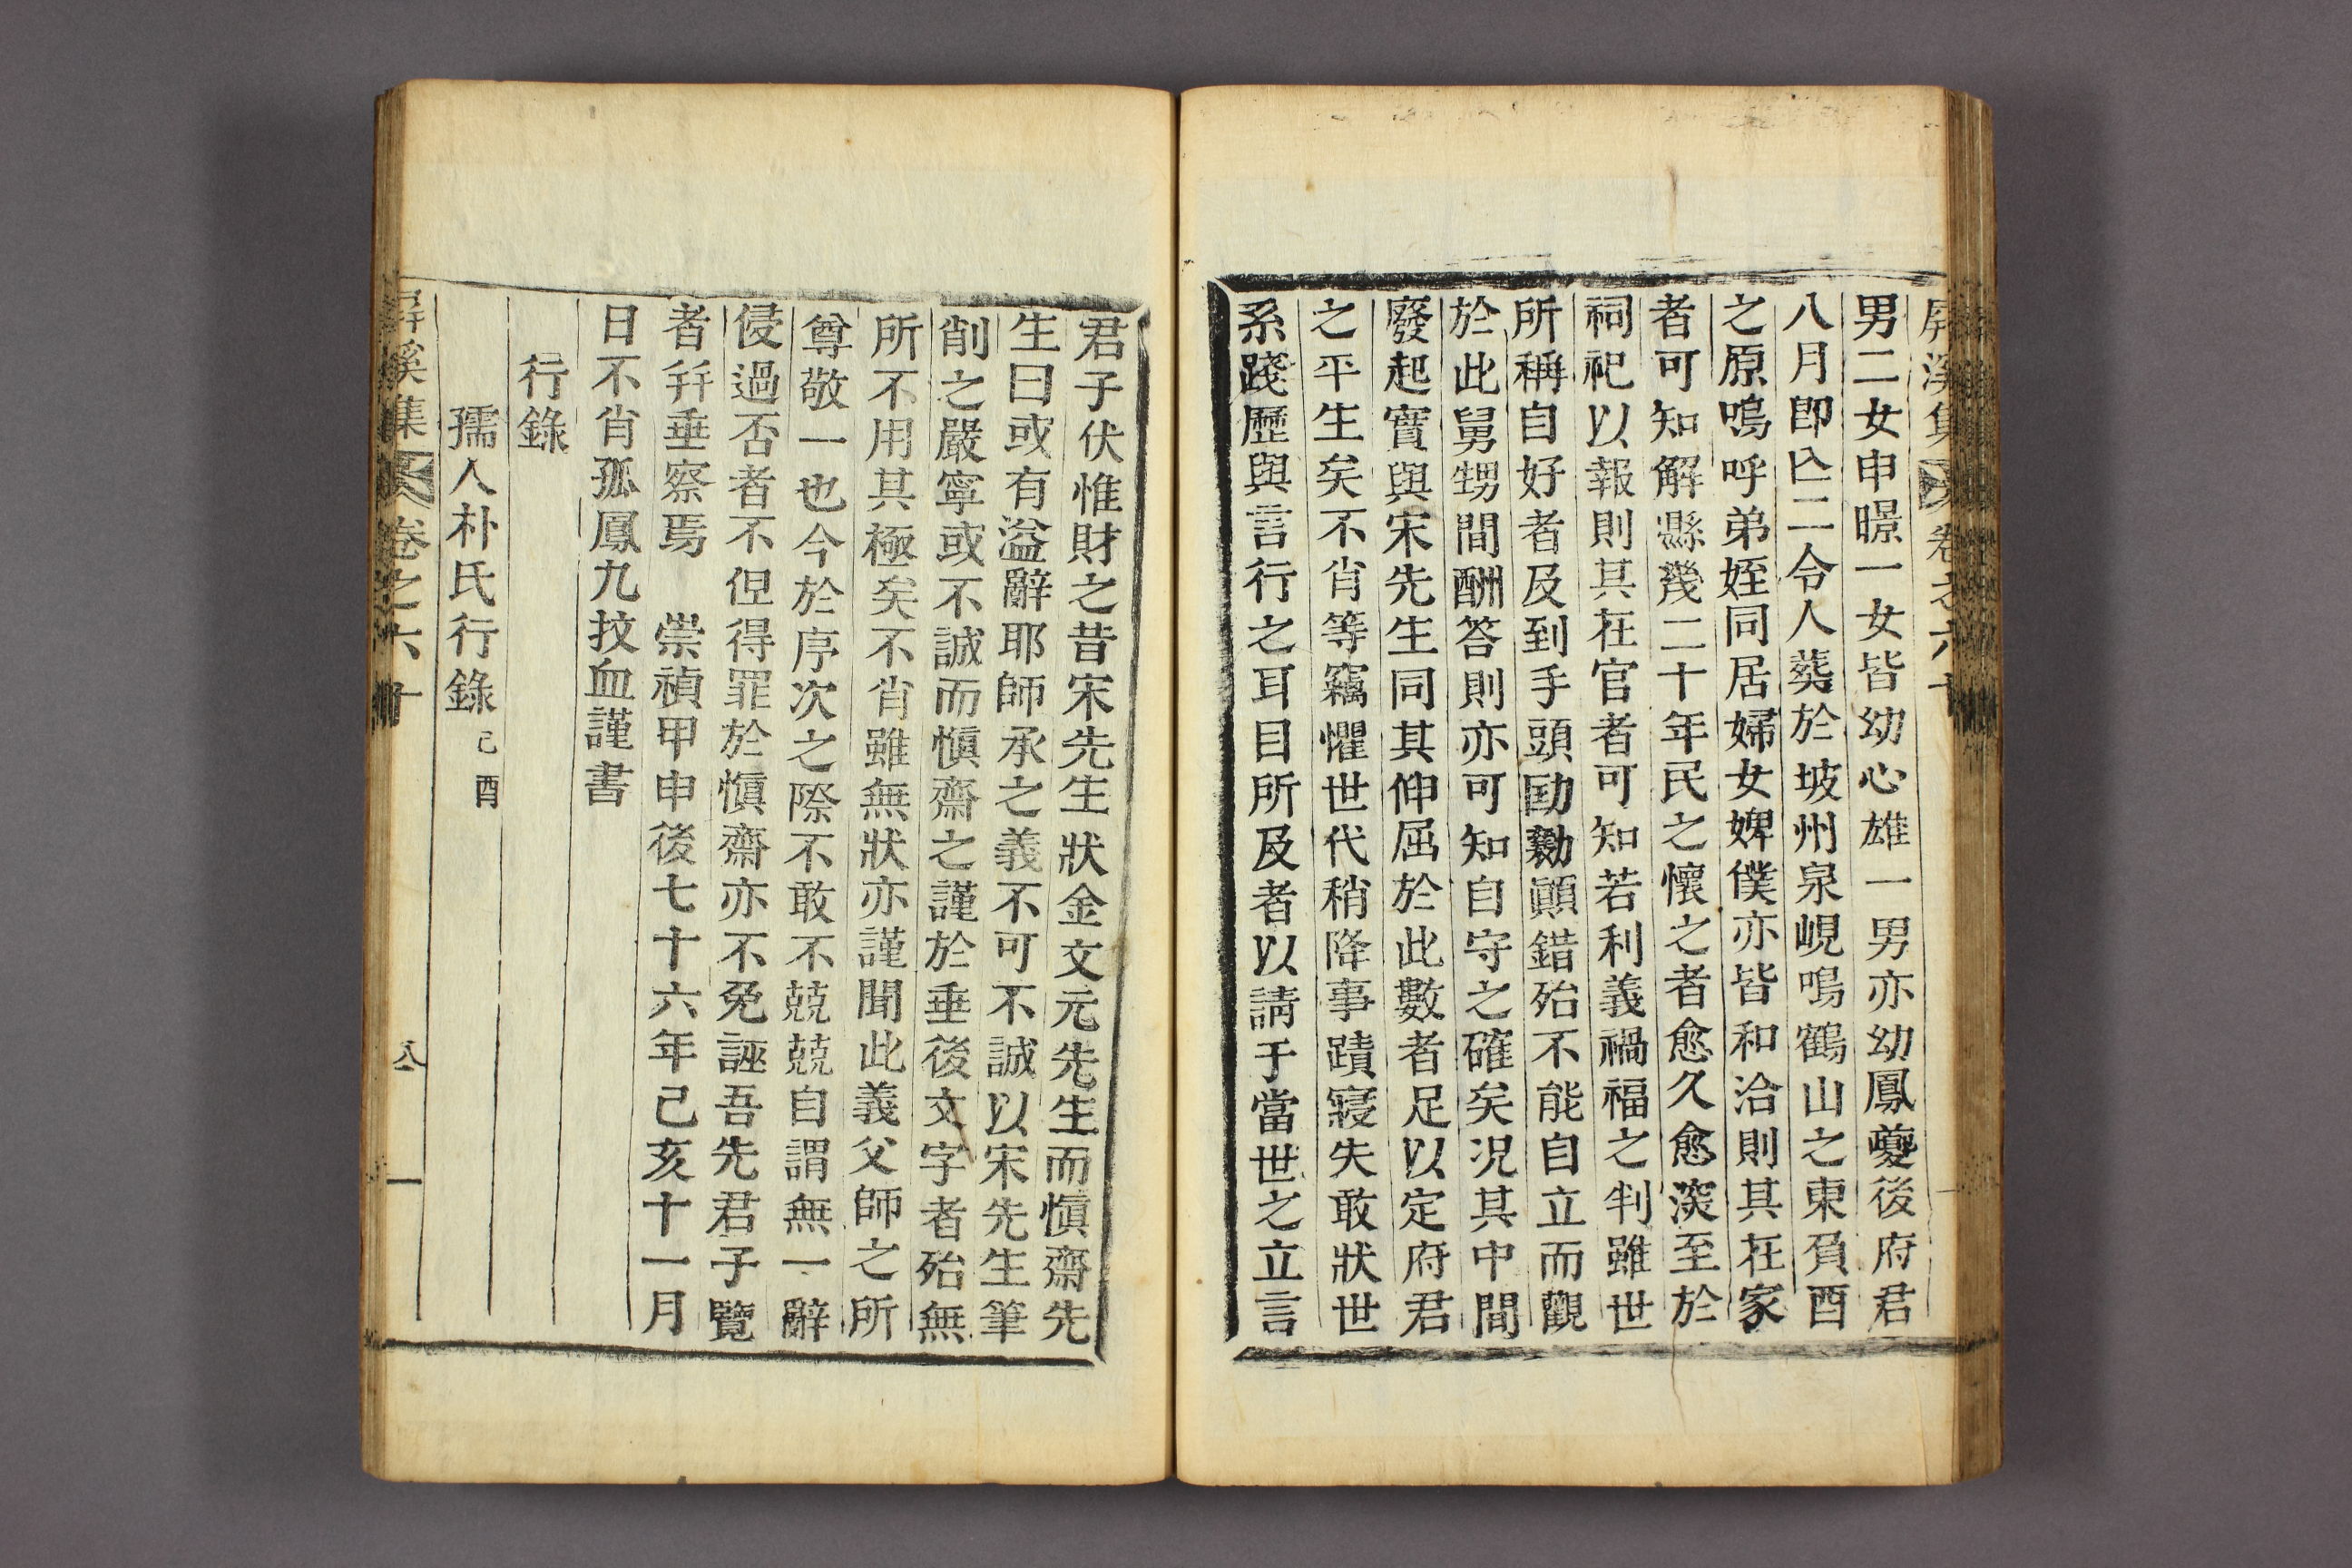 屛溪集 卷之六十
男二女申暻一女皆幼心雄一男亦幼鳳夔後府君
八月卽亾二令人葬於坡州泉峴鳴鶴山之東負酉
之原嗚呼弟姪同居婦女婢僕亦皆和洽則其在家
者可知解縣幾二十年民之懷之者愈久愈深至於
祠祀以報則其在官者可知若利義禍福之判雖世
所稱自好者及到手頭劻勷顚錯殆不能自立而觀
於此舅甥間酬答則亦可知自守之確矣况其中間
廢起實與宋先生同其伸屈於此數者足以定府君
之平生矣不肖等竊懼世代稍降事蹟寢失敢狀世
系踐歷與言行之耳目所及者以請于當世之立言
君子伏惟財之昔宋先生狀金文元先生而愼齋先
生曰或有溢辭耶師承之義不可不誠以宋先生筆
削之嚴寧或不誠而愼齋之謹於垂後文字者殆無
所不用其極矣不肖雖無狀亦謹聞此義父師之所
尊敬一也今於序次之際不敢不兢兢自謂無一辭
侵過否者不但得罪於愼齋亦不免誣吾先君子覽
者幷垂察焉 崇禎甲申後七十六年己亥十一月
日不肖孤鳳九抆血謹書
行錄
孺人朴氏行錄 己酉
屛溪集 卷之六十 八 一